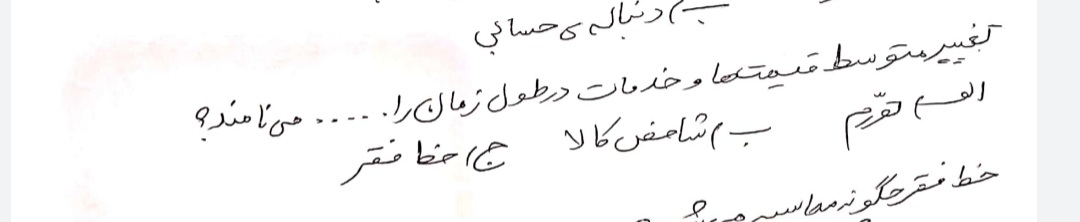 ب) دنباله ی حسابی
تغییر متوسط قیمت‌ها و خدمات در طول زمان را ..... می نامند؟
الف) تورّم ب) شاخص کالا ج) خط فقر
خط فقر چگونه محاسبه